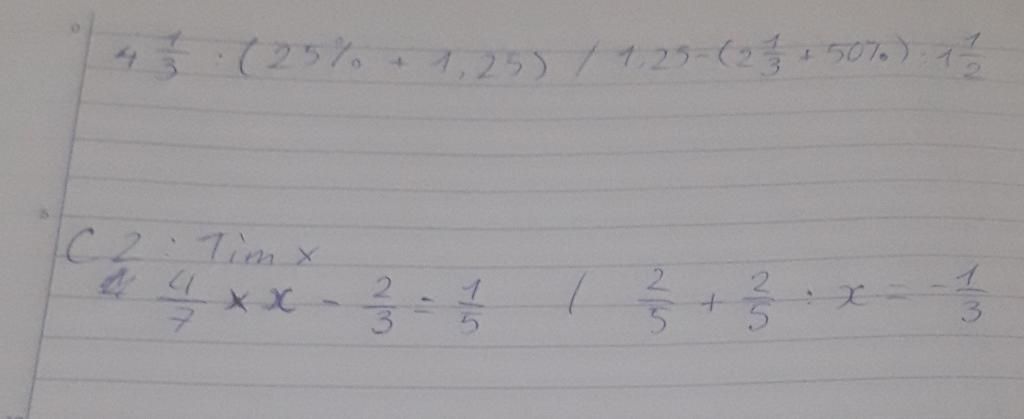 4 1/3 : (25% + 1,25) / 1,25-(2 1/3 + 50%) : 1 1/2
C2 : Tìm x
4/7 × x - 2/3 = 1/5 / 2/5 + 2/5 : x = -1/3